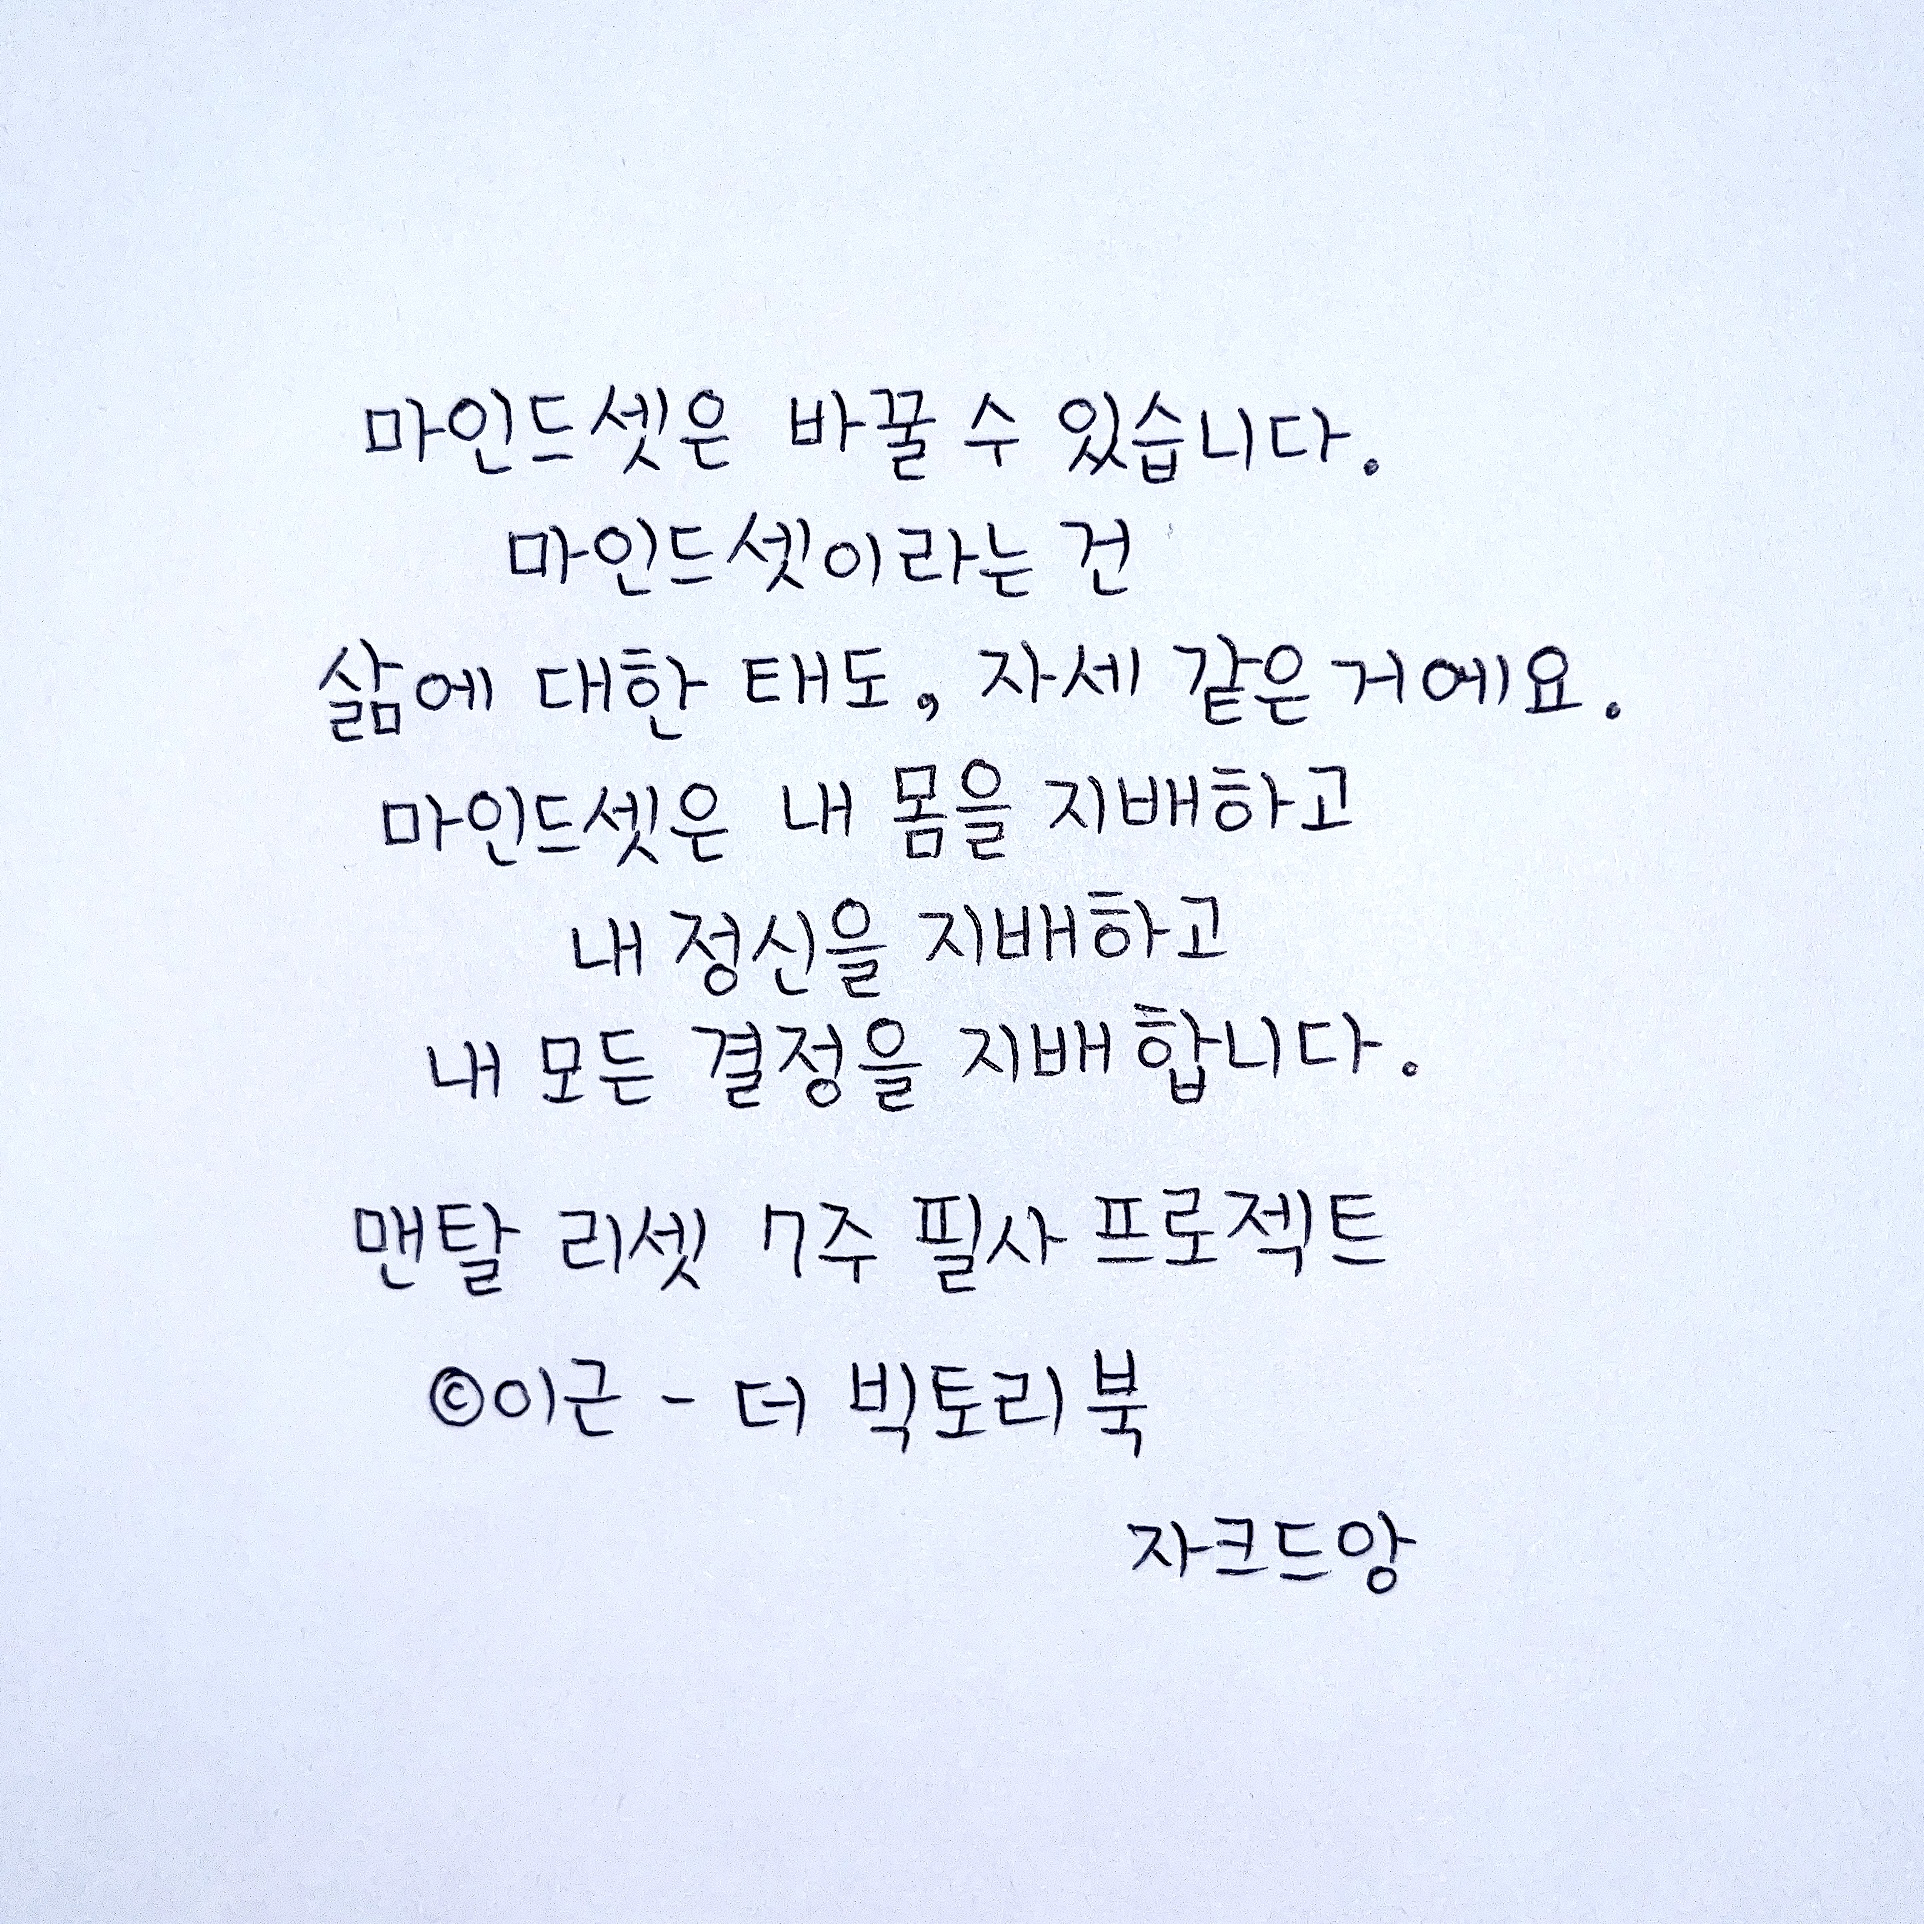 마인드셋은 바꿀 수 있습니다.
마인드셋이라는 건
삶에 대한 태도, 자세 같은 거에요.
마인드셋은 내 몸을 지배하고
내 정신을 지배하고
내 모든 결정을 지배합니다.
맨탈 리셋 7주 필사 프로젝트
©이근 - 더 빅토리 북
자크드앙